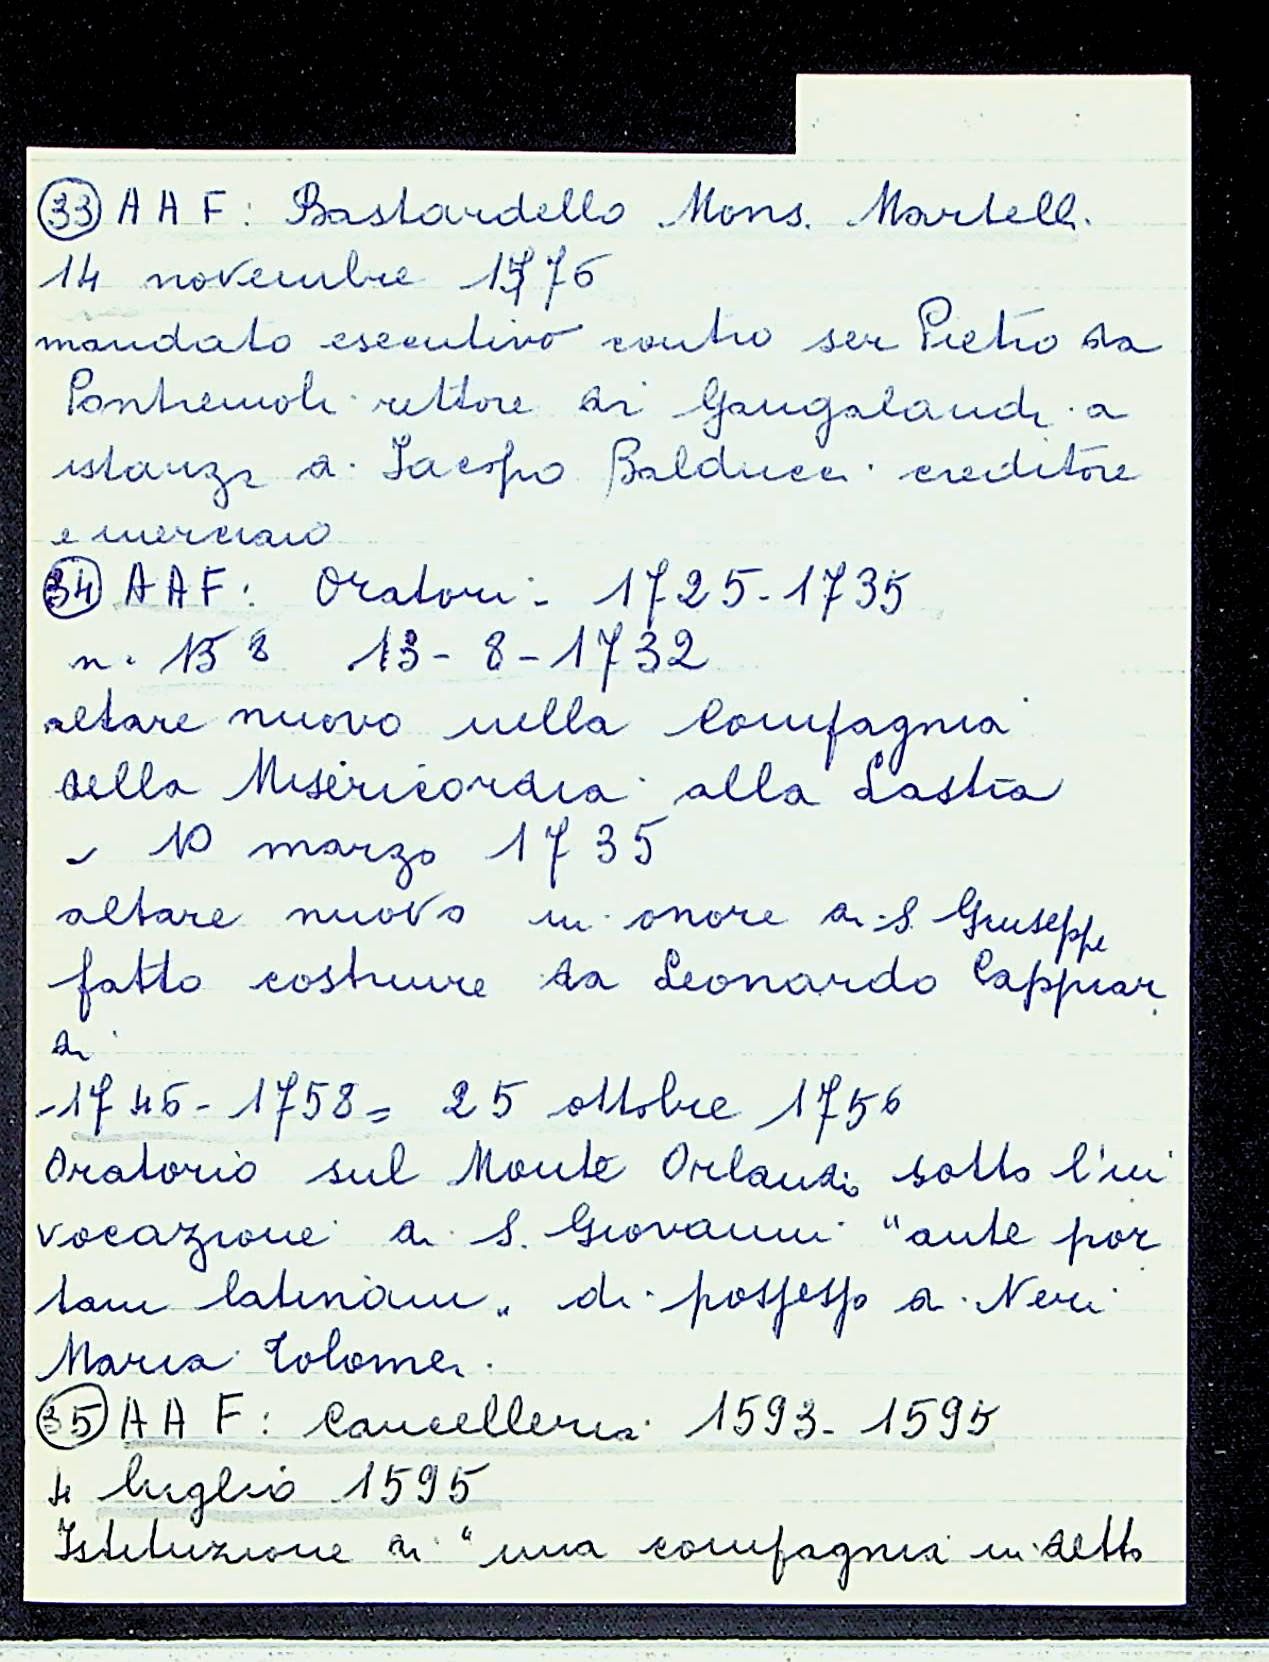 33 A A F: Bastardello Mons. Martelli
14 novembre 1576
mandato esecutivo contro ser Pietro da
Pontremoli rettore di Gangalandi a
istanza di Iacopo Balducci creditore
e merciaio
34 A A F: Oratori - 1725-1735
n. 158 13-8-1732
altare nuovo nella Compagnia
della Misericordia alla Lastra
- 10 marzo 1735
altare nuovo in onore di S. Giuseppe
fatto costruire da Leonardo Cappiar
di
-1746-1758= 25 ottobre 1756
Oratorio sul Monte Orlandi sotto l'in
vocazione di S. Giovanni "ante por
tam latinam" di possesso di Neri
Maria Tolomei.
35 A A F: Cancelleria 1593-1595
4 luglio 1595
Istituzione di "una compagnia in detto